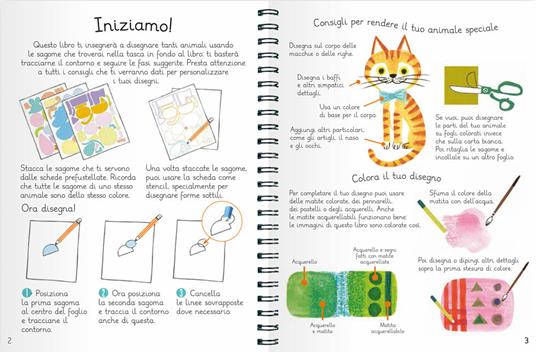 Iniziamo!
Questo libro ti insegnerà a disegnare tanti animali usando
le sagome che troverai nella tasca in fondo al libro: ti basterà
tracciarne il contorno e seguire le fasi suggerite. Presta attenzione
a tutti i consigli che ti verranno dati per personalizzare
i tuoi disegni.
Stacca le sagome che ti servono
dalle schede prefustellate. Ricorda
che tutte le sagome di uno stesso
animale sono dello stesso colore.
Una volta staccate le sagome,
puoi usare la scheda come
stencil, specialmente per
disegnare forme sottili.
Ora disegna!
1 Posiziona
la prima sagoma
al centro del foglio
e tracciane il
contorno.
2 Ora posiziona
la seconda sagoma
e traccia il contorno
anche di questa.
3 Cancella
le linee sovrapposte
dove necessario.
2
Consigli per rendere il tuo animale speciale
Disegna sul corpo delle
macchie o delle righe.
Disegna i baffi
e altri simpatici
dettagli.
Usa un colore
di base per il corpo.
Aggiungi altri particolari,
come gli artigli, il naso
e gli occhi.
Se vuoi, puoi disegnare
le parti del tuo animale
su fogli colorati invece
che sulla carta bianca.
Poi ritaglia le sagome e
incollale su un altro foglio.
Colora il tuo disegno
Per completare il tuo disegno puoi usare
delle matite colorate, dei pennarelli,
dei pastelli o degli acquerelli. Anche
le matite acquerellabili funzionano bene:
le immagini di questo libro sono colorate così.
Sfuma il colore della
matita con dell'acqua.
Acquerello
Acquerello e segni
fatti con matite
acquerellabili
Acquerello
e matita
Matita
acquerellabile
Poi disegna o dipingi altri dettagli
sopra la prima stesura di colore.
3